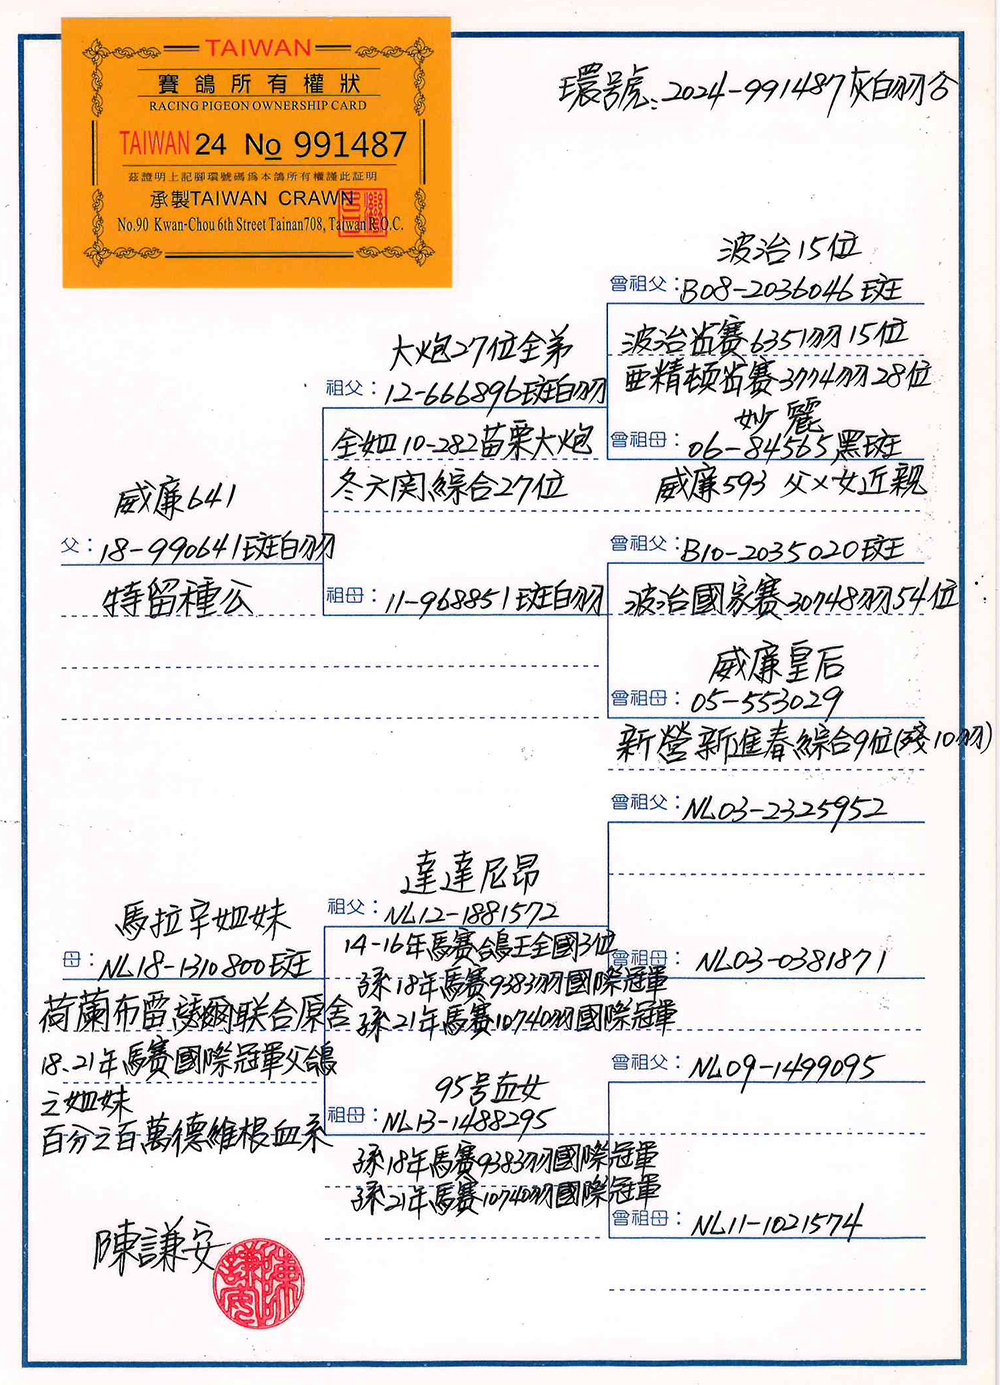 TAIWAN
賽鴿所有權狀
RACING PIGEON OWNERSHIP CARD
TAIWAN 24 No 991487
茲證明上記腳環號碼為本鴿所有權謹此証明
承製TAIWAN CRAWN
No.90 Kwan-Chou 6th Street Tainan708, Taiwan R.O.C.
環號:2024-991487灰白羽公
波治15位
曾祖父:B08-2036046斑
波治省賽6351羽15位
亜精頓省賽3774羽28位
妙麗
曾祖母:06-84565黑斑
威廉593 父×女近親
大炮27位全弟
祖父:12-666896斑白羽
全姐10-282苗栗大炮
冬六関綜合27位
威廉641
父:18-990641斑白羽
特留種公
祖母:11-968851斑白羽
曾祖父:B10-2035020斑
波治國家賽30748羽54位
威廉皇后
曾祖母:05-553029
新營新進春綜合9位(殘10羽)
曾祖父:NL03-2325952
達達尼昂
祖父:NL12-1881572
14-16年馬賽鴿王全國3位
孫18年馬賽9383羽國際冠軍
孫21年馬賽10740羽國際冠軍
曾祖母:NL03-0381871
馬拉辛姐妹
母:NL18-1310800斑
荷蘭布雷諼爾联合原舍
18.21年馬賽國際冠軍父鴿
之姐妹
百分之百萬德維根血系
曾祖父:NL09-1499095
95号血女
祖母:NL13-1488295
孫18年馬賽9383羽國際冠軍
孫21年馬賽10740羽國際冠軍
曾祖母:NL11-1021574
陳謙安